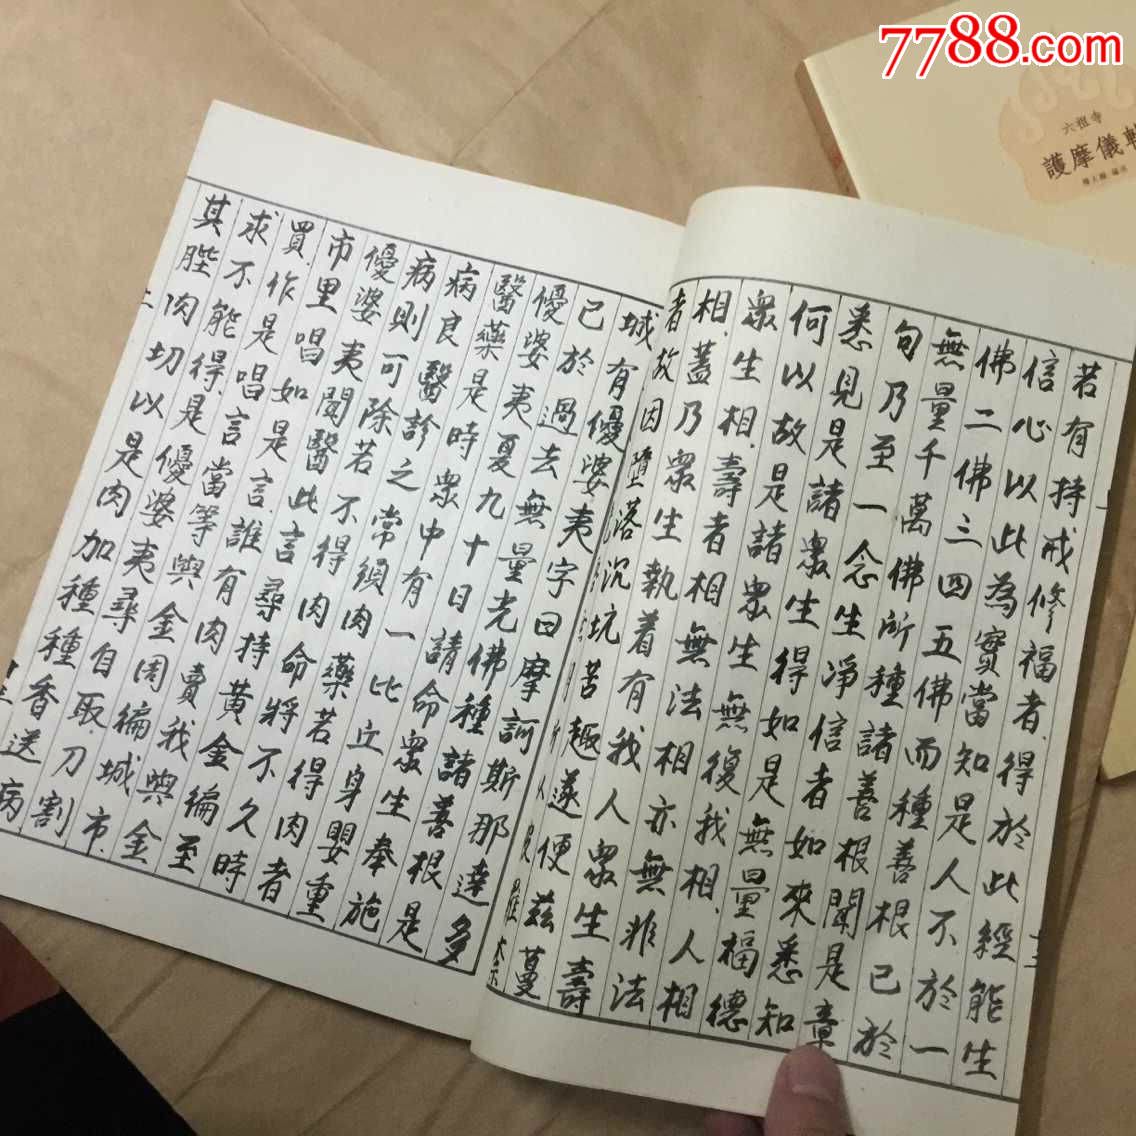 7788.com
六祖寺
護摩儀軌
若有持戒修福者、得於此經能生
信心以此為實當知是人不於一
佛二佛三四五佛而種善根已於
無量千萬佛所種諸善根聞是章
句乃至一念生淨信者如來悉知
悉見是諸眾生得如是無量福德
何以故是諸眾生無復我相、人相
眾生相、壽者相無法相亦無非法
相、蓋乃眾生執着有我人眾生壽
者故因墮落沉坑苦趣遂便茲蔓
城有優婆夷字曰摩訶斯那達多
已於過去無量光佛種諸善根是
優婆夷夏九十日請命眾生奉施
醫藥是時眾中有一比丘身嬰重
病良醫診之常須肉藥若得肉者
病則可除若不得肉命將不久時
優婆夷聞醫此言尋持黃金徧至
市里唱如是言誰有肉賣我與金
買、作是唱言當等與金周徧城市、
求不能得、是優婆夷尋自取刀割
其髀肉切以是肉加種種香送病